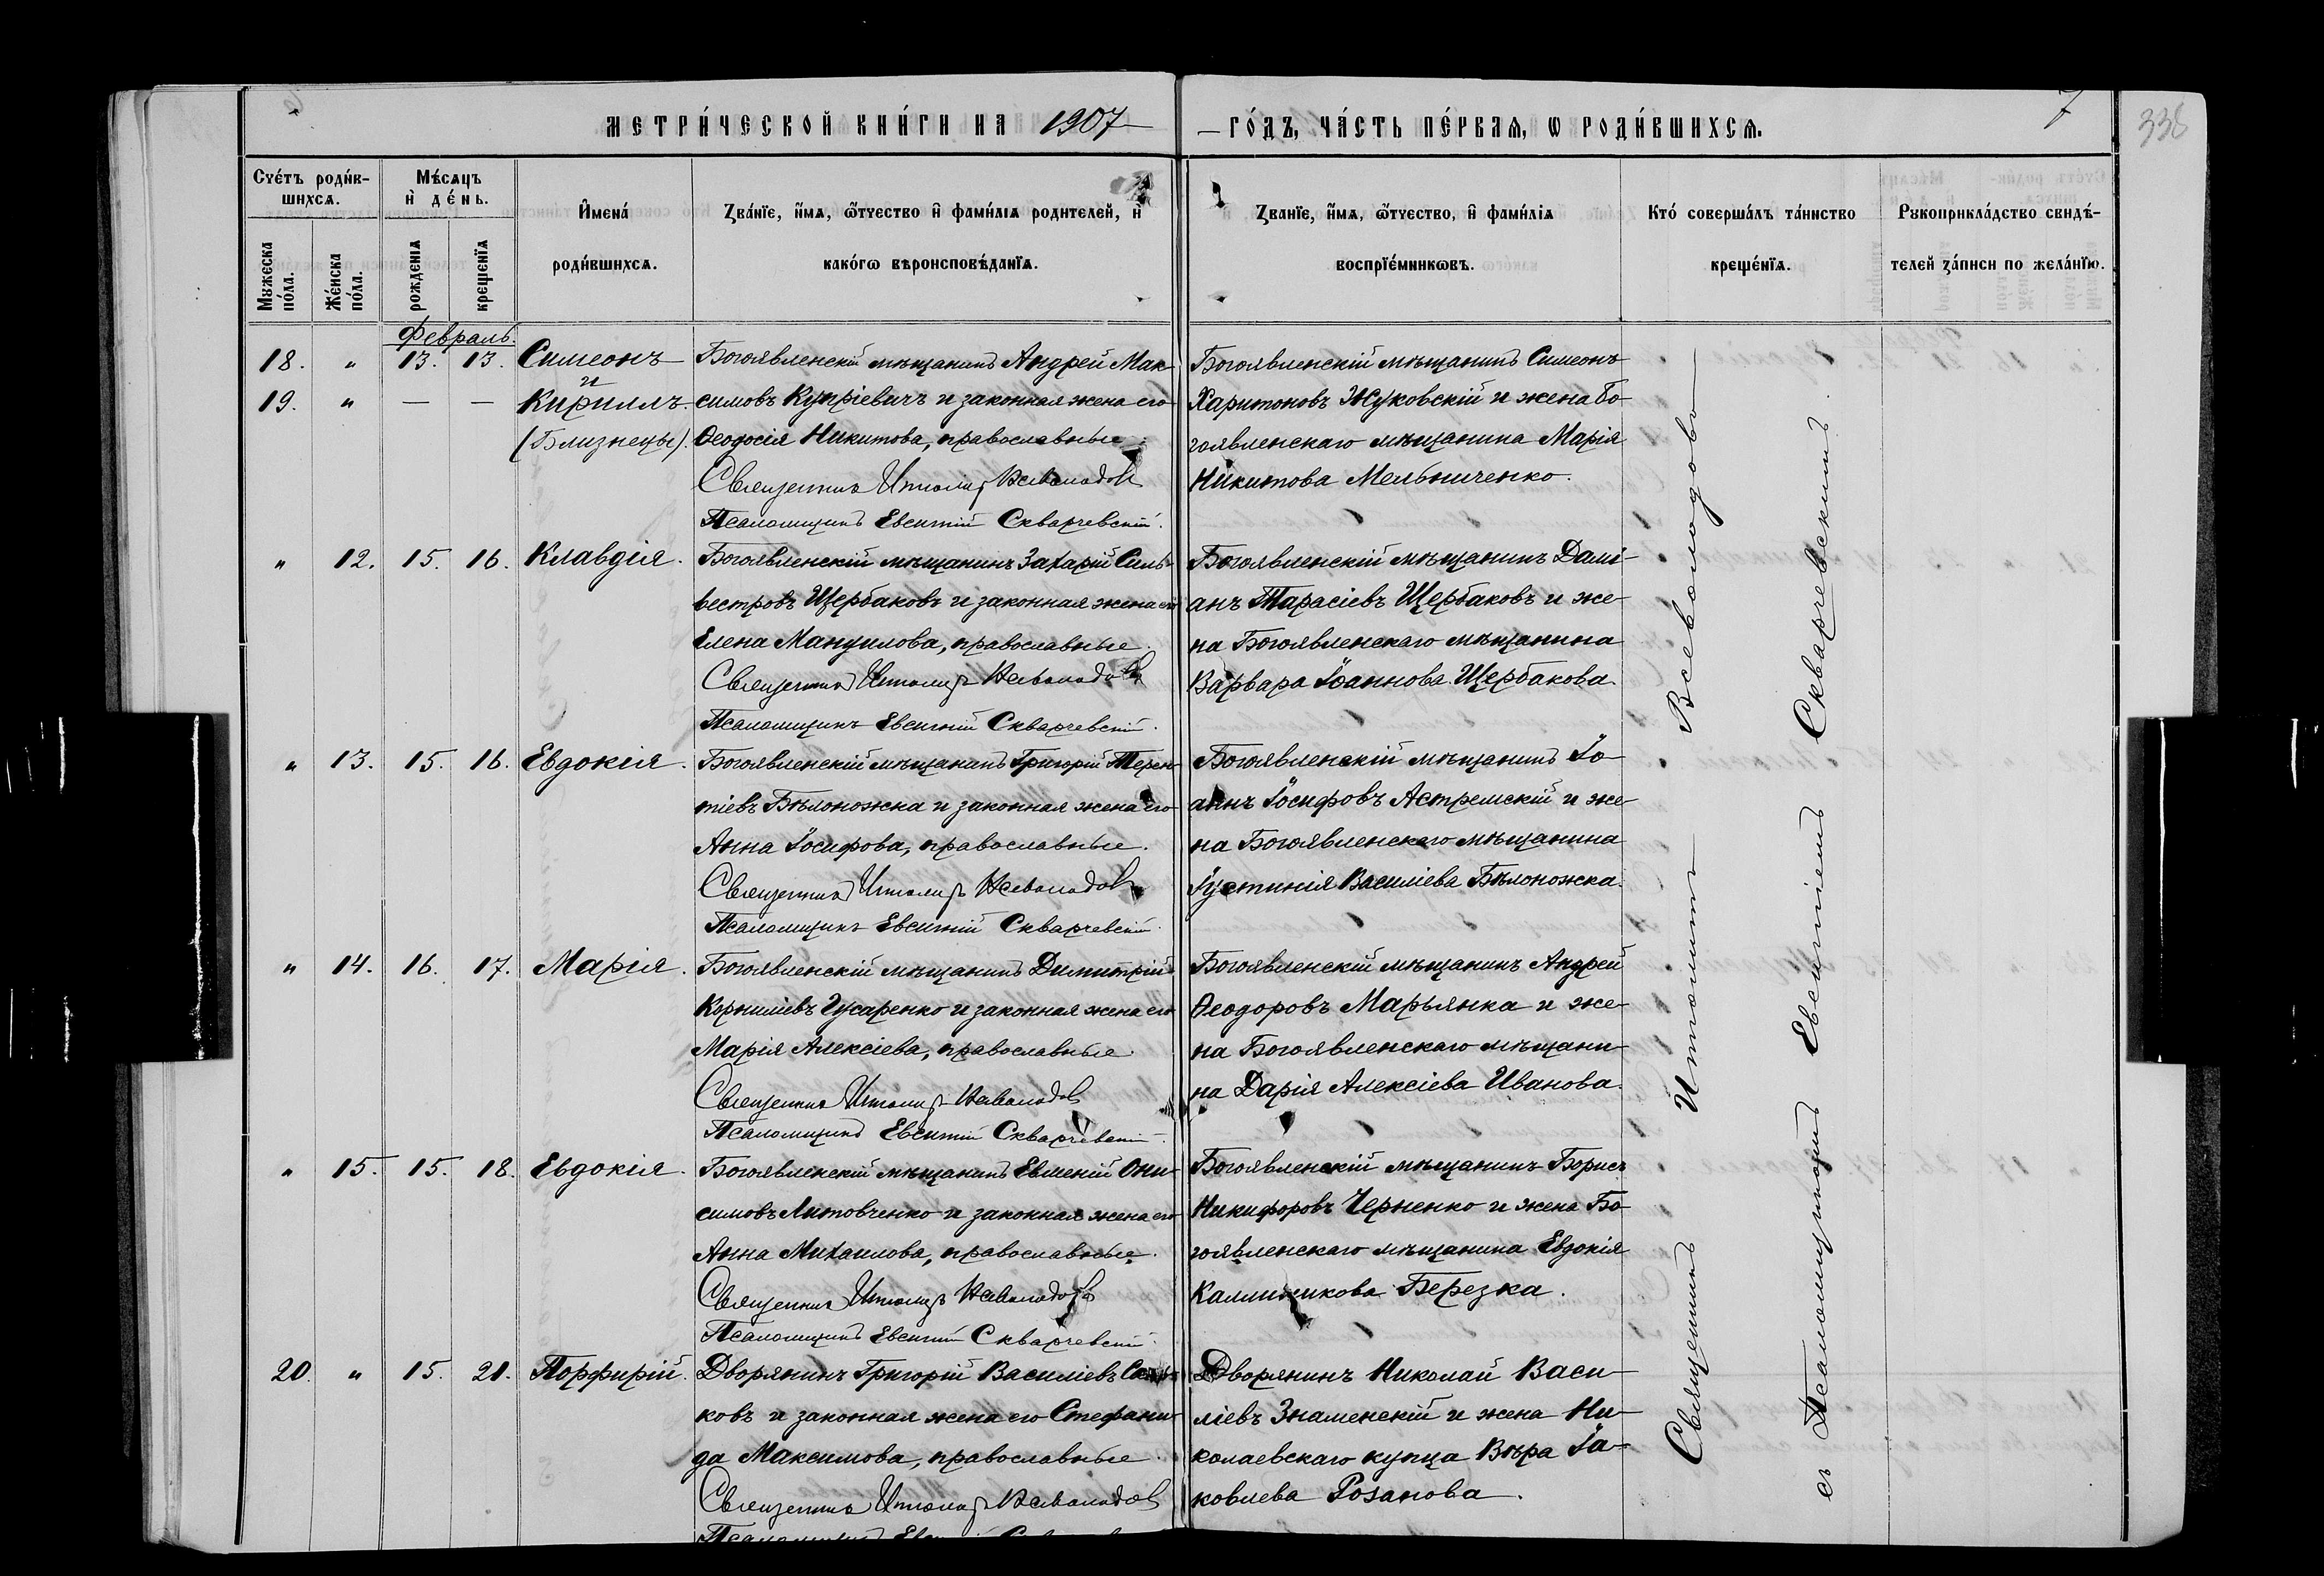 МЕТРИ́ЧЕСКОЙ КНИ́ГИ НА 1907
— ГО́ДЪ, ЧА́СТЬ ПЕ́РВАѦ, Ѡ РОДИ́ВШИХСѦ.
7
338
Счéтъ роди́в-
шихсѧ.
Мꙋжеска
по́ла.
Же́нска
по́ла.
Мѣ́сѧцъ
и҆ де́нь.
рожденїѧ
крещенїѧ
И҆мена́
роди́вшихсѧ.
Зва́нїе, и҆́мѧ, ѻ҆́тчество и҆ фами́лїѧ родителей, и҆
како́гѡ вѣроисповѣ́данїѧ.
Зва́нїе, и҆́мѧ, ѻ҆́тчество, и҆ фами́лїѧ
воспрїе́мникѡвъ.
Кто́ соверша́лъ та́инство
креще́нїѧ.
Рꙋкоприкла́дство свидѣ́-
телей за́писи по жела́нїю.
Февраль.
18. " 13. 13. Симеонъ
и
19. " — — Кириллъ.
(Близнецы).
Богоявленскій мѣщанинъ Андрей Мак-
симовъ Купріевичъ и законная жена его
Ѳеодосія Никитова, православные.
Священникъ Ипполитъ Всеволодовъ
Псаломщикъ Евсигній Скварчевскій.
Богоявленскій мѣщанинъ Симеонъ
Харитоновъ Жуковскій и жена Бо-
гоявленскаго мѣщанина Марія
Никитова Мельниченко.
" 12. 15. 16. Клавдія.
Богоявленскій мѣщанинъ Захарій Силь-
вестровъ Щербаковъ и законная жена его
Елена Мануилова, православные.
Священникъ Ипполитъ Всеволодовъ
Псаломщикъ Евсигній Скварчевскій.
Богоявленскій мѣщанинъ Дамі-
анъ Тарасіевъ Щербаковъ и же-
на Богоявленскаго мѣщанина
Варвара Іоаннова Щербакова.
" 13. 15. 16. Евдокія.
Богоявленскій мѣщанинъ Григорій Терен-
тіевъ Бѣлоножка и законная жена его
Анна Іосифова, православные.
Священникъ Ипполитъ Всеволодовъ
Псаломщикъ Евсигній Скварчевскій.
Богоявленскій мѣщанинъ Іо-
аннъ Іосифовъ Астремскій и же-
на Богоявленскаго мѣщанина
Іустинія Василіева Бѣлоножка.
" 14. 16. 17. Марія.
Богоявленскій мѣщанинъ Димитрій
Корниліевъ Гусаренко и законная жена его
Марія Алексіева, православные.
Священникъ Ипполитъ Всеволодовъ
Псаломщикъ Евсигній Скварчевскій.
Богоявленскій мѣщанинъ Андрей
Ѳеодоровъ Марьянка и же-
на Богоявленскаго мѣщани-
на Дарія Алексіева Иванова.
" 15. 15. 18. Евдокія.
Богоявленскій мѣщанинъ Евменій Они-
симовъ Литовченко и законная жена его
Анна Михаилова, православные.
Священникъ Ипполитъ Всеволодовъ
Псаломщикъ Евсигній Скварчевскій.
Богоявленскій мѣщанинъ Борисъ
Никифоровъ Черненко и жена Бо-
гоявленскаго мѣщанина Евдокія
Калинникова Березка.
20. " 15. 21. Порфирій.
Дворянинъ Григорій Василіевъ
ковъ и законная жена его Стефани-
да Максимова, православные.
Священникъ Ипполитъ Всеволодовъ
Псаломщикъ
Дворянинъ Николай Васи-
ліевъ Знаменскій и жена Ни-
колаевскаго купца Вѣра Іа-
ковлева Розанова.
Священникъ Ипполитъ Всеволодовъ
съ Псаломщикомъ Евсигніемъ Скварчевскимъ.